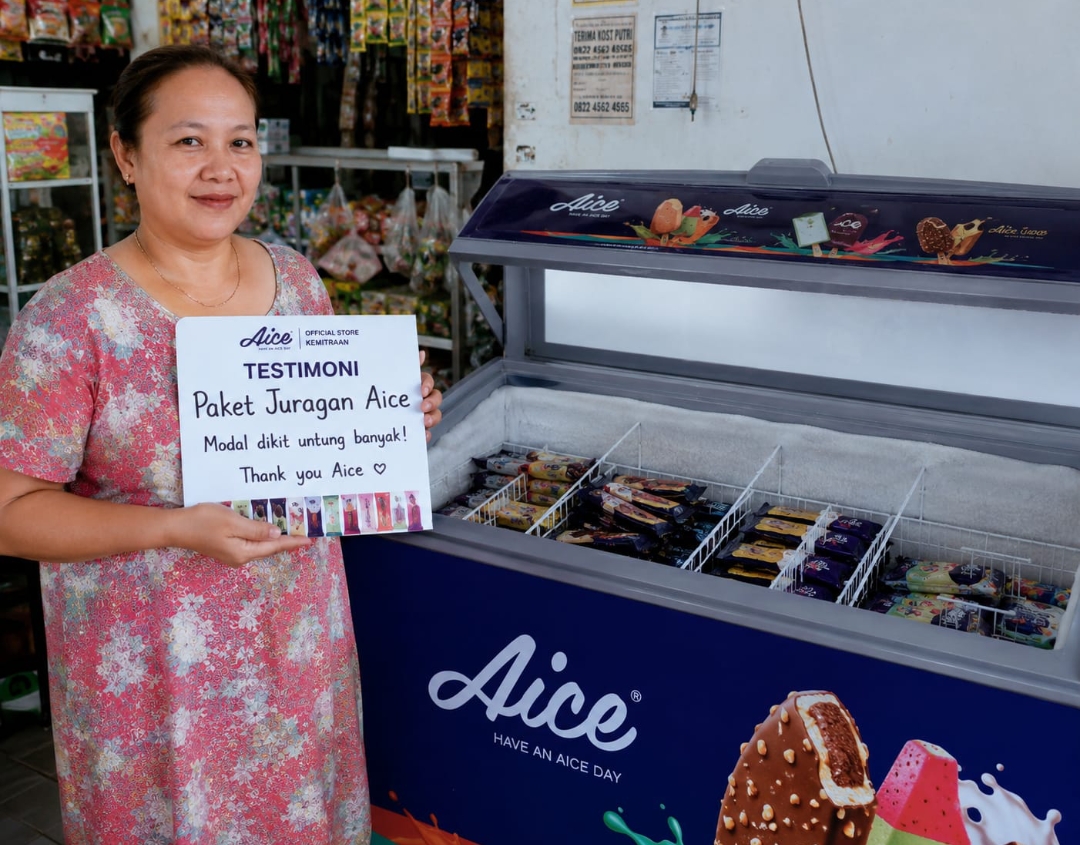 TERIMA KOST PUTRI
0822 4562 4565
Aice
HAVE AN AICE DAY
Aice
Aice
Aice
OFFICIAL STORE
KEMITRAAN
TESTIMONI
Paket Juragan Aice
Modal dikit untung banyak!
Thank you Aice ♡
Aice®
HAVE AN AICE DAY